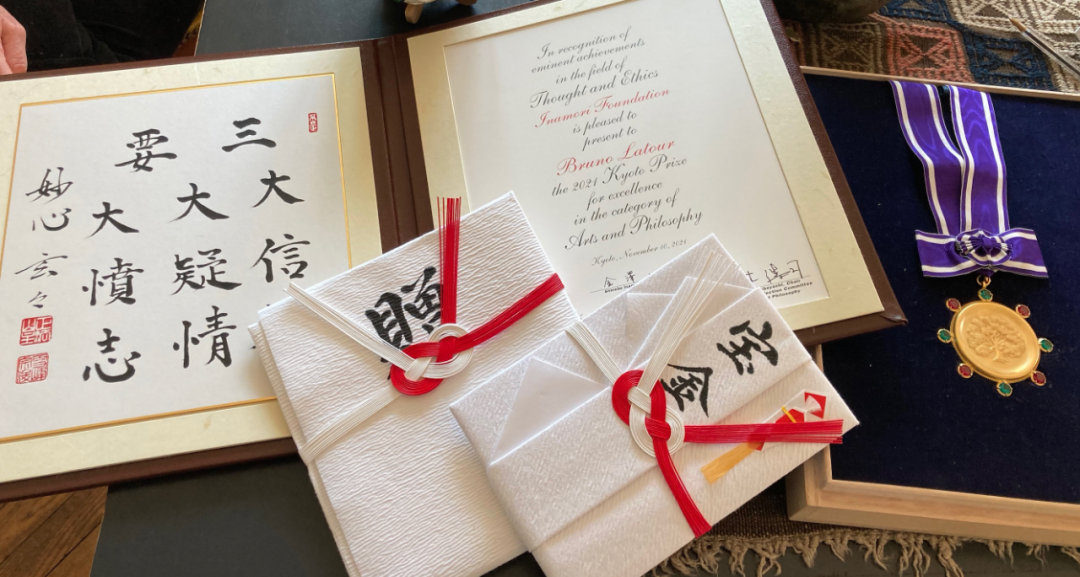 三要
大信
大疑情
大憤志
妙心
玄々
In recognition of
eminent achievements
in the field of
Thought and Ethics
Inamori Foundation
is pleased to
present to
Bruno Latour
the 2021 Kyoto Prize
for excellence
in the category of
Arts and Philosophy
Kyoto, November 10, 2021
Chair
Committee
Philosophy
贈
金